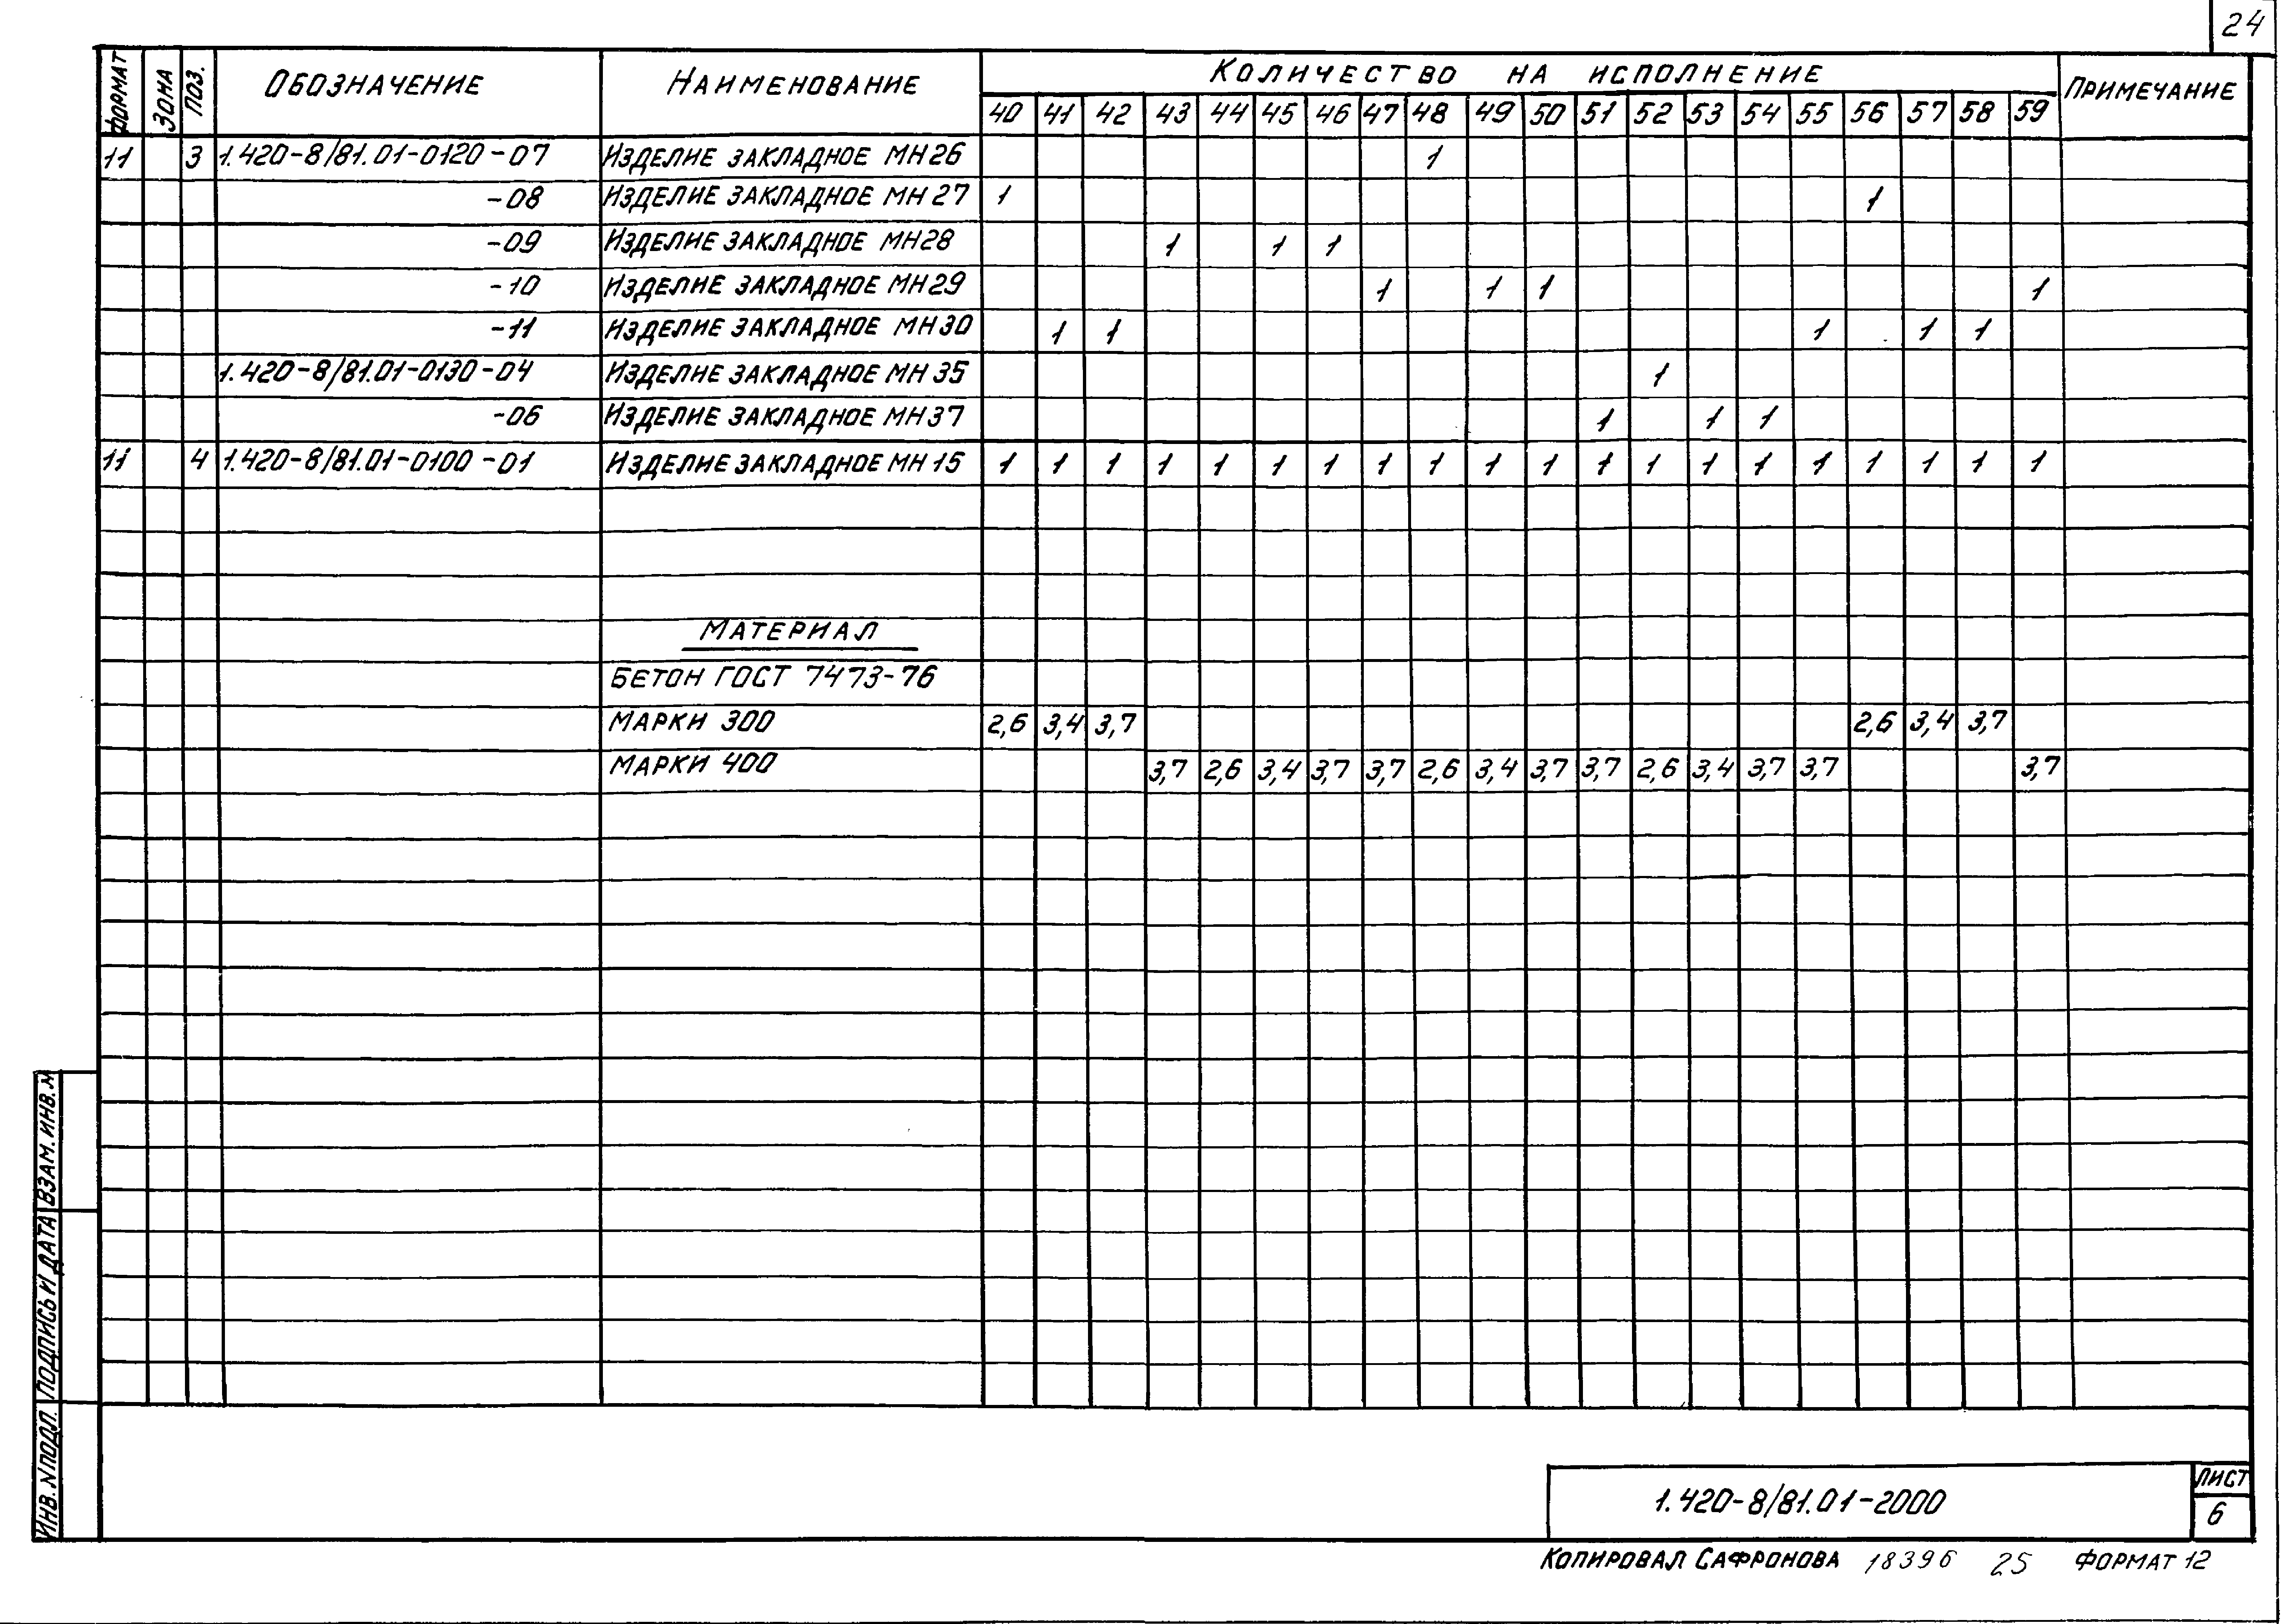 24
ФОРМАТ ЗОНА ПОЗ. ОБОЗНАЧЕНИЕ НАИМЕНОВАНИЕ КОЛИЧЕСТВО НА ИСПОЛНЕНИЕ ПРИМЕЧАНИЕ
40 41 42 43 44 45 46 47 48 49 50 51 52 53 54 55 56 57 58 59
11 3 1.420-8/81.01-0120-07 ИЗДЕЛИЕ ЗАКЛАДНОЕ МН26 1
-08 ИЗДЕЛИЕ ЗАКЛАДНОЕ МН 27 1 1
-09 ИЗДЕЛИЕ ЗАКЛАДНОЕ МН28 1 1 1
-10 ИЗДЕЛИЕ ЗАКЛАДНОЕ МН29 1 1 1 1
-11 ИЗДЕЛИЕ ЗАКЛАДНОЕ МН30 1 1 1 1 1
1.420-8/81.01-0130-04 ИЗДЕЛИЕ ЗАКЛАДНОЕ МН 35 1
-06 ИЗДЕЛИЕ ЗАКЛАДНОЕ МН37 1 1 1
11 4 1.420-8/81.01-0100-01 ИЗДЕЛИЕ ЗАКЛАДНОЕ МН 15 1 1 1 1 1 1 1 1 1 1 1 1 1 1 1 1 1 1 1 1
МАТЕРИАЛ
БЕТОН ГОСТ 7473-76
МАРКИ 300 2,6 3,4 3,7 2,6 3,4 3,7
МАРКИ 400 3,7 2,6 3,4 3,7 3,7 2,6 3,4 3,7 3,7 2,6 3,4 3,7 3,7 3,7
ИНВ. N ПОДЛ. ПОДПИСЬ И ДАТА ВЗАМ. ИНВ. N
1.420-8/81.01-2000
ЛИСТ
6
КОПИРОВАЛ САФРОНОВА 18396 25 ФОРМАТ 12